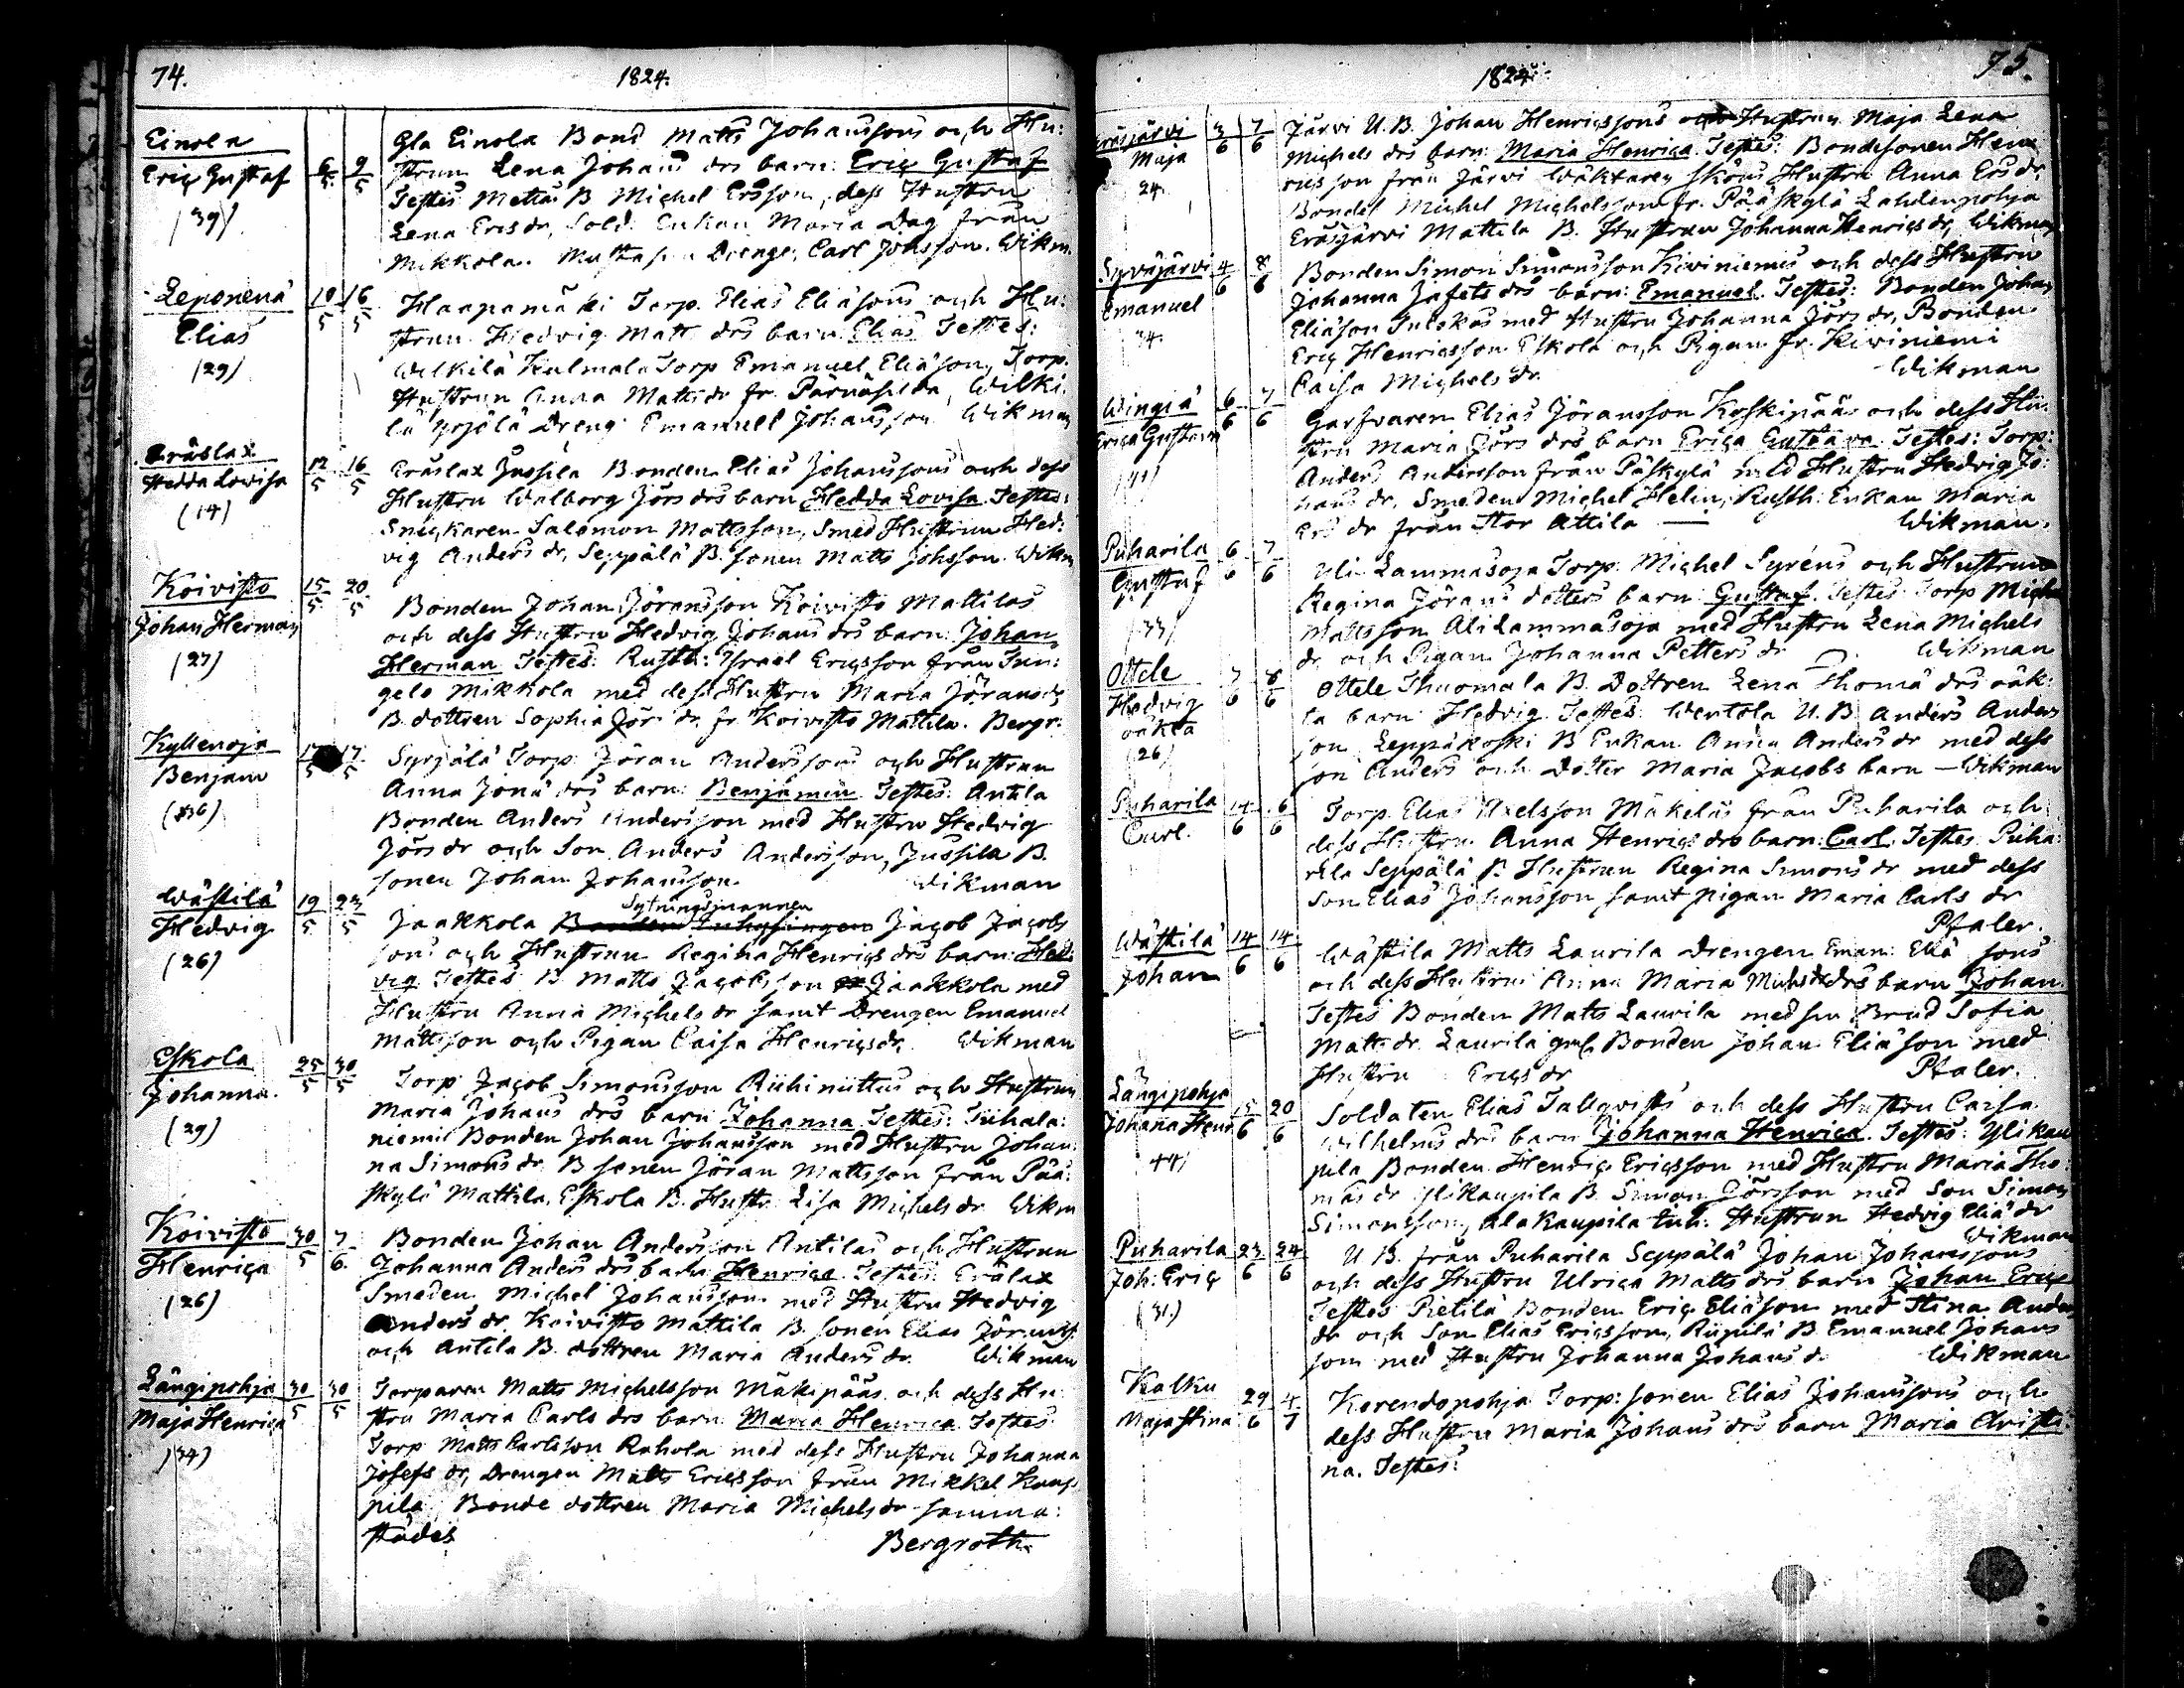 74.
1824.
Einola
Eric Gustaf
6/5 9/5
(39)
Gla Einola Bond Matts Johanssons och Hu:
strun Lena Johans drs barn: Eric Gustaf
Testes Mattas B Michel Ersson, dess Hustru
Lena Ersdr, Sold. Enkan Maria Dag från
Mikkola. Drenge, Carl Johsson. Wikm.
Leponenä
Elias
10/5 16/5
(29)
Haapamäki Torp. Elias Eliäsons och Hu:
strun Hedvig Matts drs barn Elias Testes:
Wilkilä Kulmala Torp Emanuel Eliäson, Torp.
Hustrun Anna Mattsdr fr. Wilki:
lä Yrjölä Dreng Emanuel Johansson Wikman
Eräslax
Hedda Lovisa
12/5 16/5
(14)
Eräslax Jussila Bonden Elias Johanssons och dess
Hustru Walborg Jörs drs barn Hedda Lovisa Testes:
Snickaren Salomon Mattsson, Smed Hustrun Hed:
vig Anders dr, Seppälä B. sonen Matts Johsson. Wikm
Koivisto
Johan Herman
15/5 20/5
(27)
Bonden Johan Jöransson Koivisto Mattilas
och dess Hustru Hedvig Johans drs barn: Johan
Herman Testes: Rusth: Israel Ericsson från Tun:
gelo Mikkola med dess Hustru Maria Jöransdr
B. dottren Sophia Jörs dr. fr. Koivisto Mattila. Bergr:
Kyllenoja
Benjam
17/5 17/5
(36)
Syrjälä Torp. Jöran Anderssons och Hustrun
Anna Jonä drs barn: Benjamin Testes: Antila
Bonden Anders Andersson med Hustru Hedvig
Jörs dr och Son Anders Andersson, Jussila B.
sonen Johan Johansson Wikman
Wästilä
Hedvig
19/5 23/5
(26)
Sytningsmannen
Jaakkola Bonden Inhysingen Jacob Jacobs
sons och Hustrun Regina Henrics drs barn: Hed:
vig Testes B. Matts Jacobsson Jaakkola med
Hustru Anna Michels dr samt Drengen Emanuel
Mattsson och Pigan Caisa Henricsdr, Wikman
Eskola
Johanna.
25/5 30/5
(29)
Torp Jacob Simonsson Riihiniittus och Hustrun
Maria Johans drs barn Johanna Testes: Tuhala:
niemis Bonden Johan Johansson med Hustru Johan
na Simons dr. B sonen Jöran Mattsson från Pää:
skylä Mattila, Eskola B. Hustr. Lisa Michels dr Wikm
Koivisto
Henrica
30/5 7/6
(26)
Bonden Johan Andersson Antilas och Hustrun
Johanna Anders drs barn Henrica Testes: Erälax
Smeden Michel Johansson med Hustru Hedvig
Anders dr. Koivisto Mattila B. sonen Elias Jöranss:
och Antila B. dottren Maria Anders dr. Wikman
Längipohja
Maja Henrica
30/5 30/5
(34)
Torparen Matts Michelsson Mäkipääs och dess Hu
stru Maria Carls drs barn Maria Henrica Testes
Torp Matts Carlsson Rahola med dess Hustru Johanna
Josefs dr, Drengen Matts Ericsson från Mikkel Kaup
pila Bonde dottren Maria Michels dr samma:
städes Bergroth.
75.
1824.
Eräsjärvi
Maja
3/6 7/6
24.
Järvi U. B. Johan Henricssons och Hustrun Maja Lena
Michels drs barn: Maria Henrica. Testes: Bondesonen Hen
ricsson från Järvi Wäktaren Sköns Hustru Anna Ersdr,
Bondes Michel Michelsson fr. Pääskylä Lahdenpohja
Eräsjärvi Mattila B. Hustrun Johanna Henrics dr, Wikman
Syväjärvi
Emanuel
4/6 8/6
34.
Bonden Simon Simonsson Kiviniemis och dess Hustru
Johanna Jafets drs barn: Emanuel Testes: Bonden Johan
Eliäson Inlokas med Hustru Johanna Jörs dr, Bonden
Eric Henricsson Eskola och Pigan fr. Kiviniemi
Caisa Michels dr. Wikman
Wingiä
Erica Gustava
6/6 7/6
Garfvaren Elias Jöransson Koskipää och dess Hu:
stru Maria Jörs drs barn Erica Gustava. Testes: Torp:
Anders Andersson från Päskylä med Hustru Hedvig Jo:
hans dr. Smeden Michel Helin, Rusth: Enkan Maria
Ers dr från Stor Attila Wikman.
Puharila
Gustaf
6/6 7/6
(33)
Yli Lammasoja Torp. Michel Syréns och Hustrun
Regina Jörans dotters barn: Gustaf. Testes: Torp Mich
Mattsson Ali Lammasoja med Hustru Lena Michels
dr. och Pigan Johanna Petters dr Wikman
Ottele
Hedvig
oäkta
7/6 8/6
(26)
Ottele Thuomala B. Dottren Lena Thomä drs oäk:
ta barn Hedvig Testes. Wentola U. B. Anders Anders
son Leppäkoski B Enkan Anna Anders dr med dess
son Anders och Dotter Maria Jacobs barn — Wikman
Puharila
Carl.
14/6 6/6
Torp. Elias Axelsson Mäkeläs från Puharila och
dess Hustru Anna Henrics drs barn: Carl. Testes Puha:
rila Seppälä B. Hustrun Regina Simons dr med dess
Son Elias Johansson samt pigan Maria Carls dr
Ptaler.
Wästilä
Johan
14/6 14/6
Wästila Matts Laurila drengen Eman: Eliä sons
och dess Hustru Anna Maria Michs drs barn Johan
Testes Bonden Matts Laurila med sin Brud Sofia
Matts dr. Laurila Bonden Johan Eliäson med
Hustru Erics dr Ptaler.
Längipohja
Johana Henr
15/6 20/6
44)
Soldaten Elias Tallqvists och dess Hustru Caisa
Wilhelms drs barn Johanna Henrica. Testes: Ylikau
pila Bonden Henric Ericsson med Hustru Maria Tho:
mas dr Ylikaupila B. Simon Jörsson med Son Simon
Simonsson, Alakaupila Inh. Hustrun Hedvig Eliä dr
Wikman
Puharila
Joh: Eric
23/6 24/6
(31)
U. B. från Puharila Seppälä Johan Johanssons
och dess Hustru Ulrica Matts drs barn Johan Eric
Testes Pietilä Bonden Eric Eliäson med Stina Anders
dr och Son Elias Ericsson, Riipilä B. Emanuel Johans
son med Hustru Johanna Johans d. Wikman
Kalku
Maja Stina
29/6 4/7
Korendopohja Torp: sonen Elias Johanssons och
dess Hustru Maria Johans drs barn Maria Christi
na. Testes: